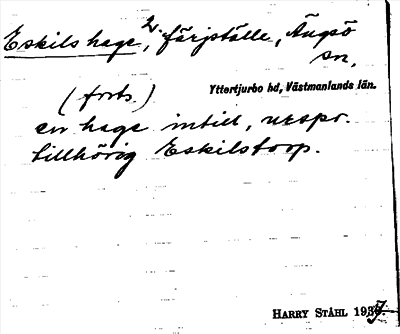 Eskils hage, 2. färjställe, Ängsö
sn,
(forts.) Yttertjurbo hd, Västmanlands län.
en hage intill, urspr.
tillhörig Eskilstorp.
HARRY STÅHL 1937.